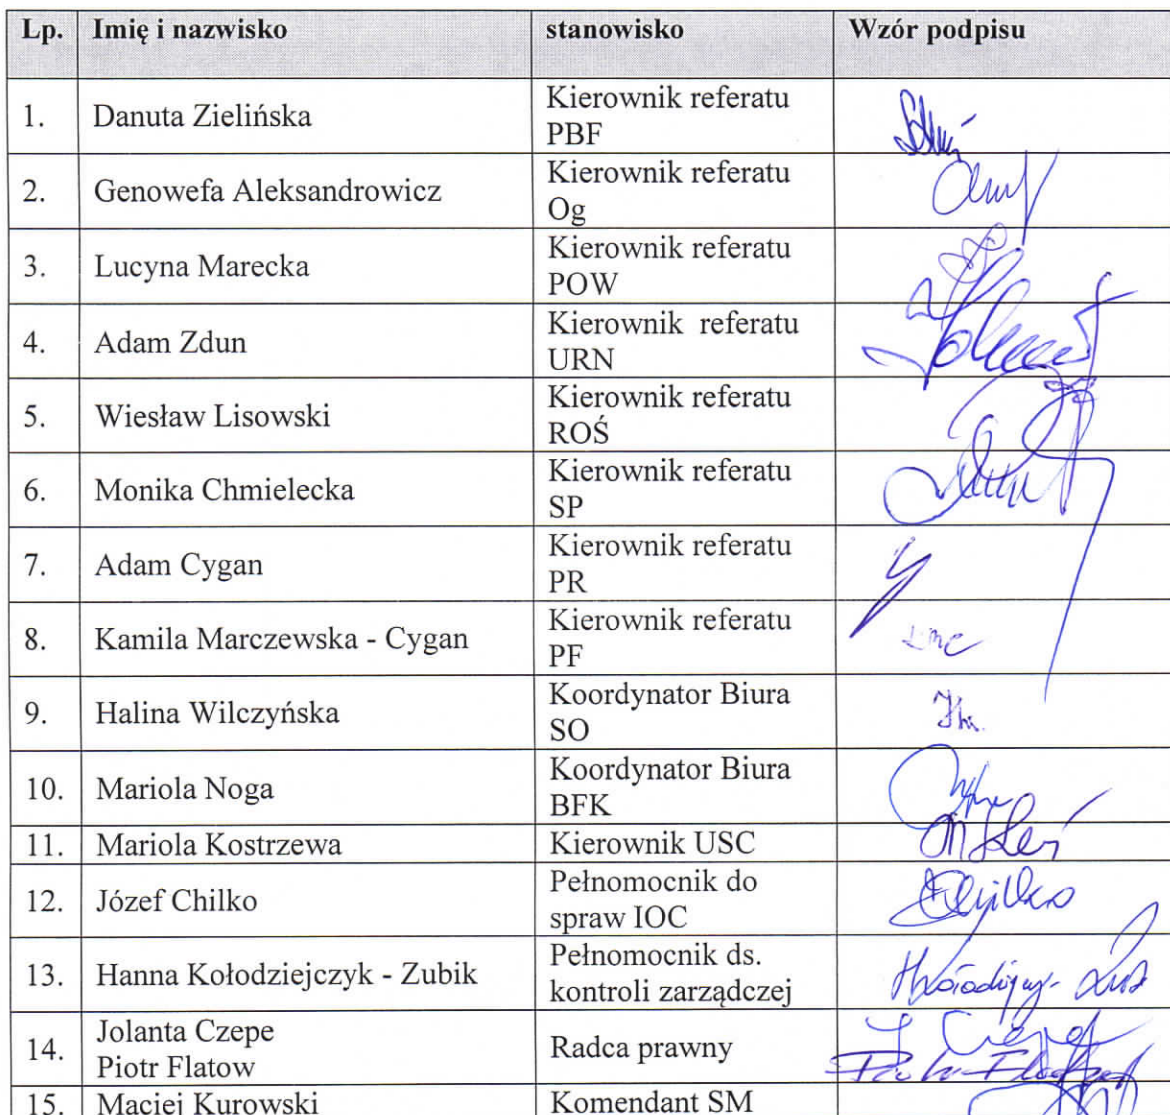 Lp. Imię i nazwisko stanowisko Wzór podpisu
1. Danuta Zielińska Kierownik referatu
PBF
2. Genowefa Aleksandrowicz Kierownik referatu
Og
3. Lucyna Marecka Kierownik referatu
POW
4. Adam Zdun Kierownik referatu
URN
5. Wiesław Lisowski Kierownik referatu
ROŚ
6. Monika Chmielecka Kierownik referatu
SP
7. Adam Cygan Kierownik referatu
PR
8. Kamila Marczewska - Cygan Kierownik referatu
PF
9. Halina Wilczyńska Koordynator Biura
SO
10. Mariola Noga Koordynator Biura
BFK
11. Mariola Kostrzewa Kierownik USC
12. Józef Chilko Pełnomocnik do
spraw IOC
13. Hanna Kołodziejczyk - Zubik Pełnomocnik ds.
kontroli zarządczej
14. Jolanta Czepe
Piotr Flatow
Radca prawny
15. Maciej Kurowski Komendant SM